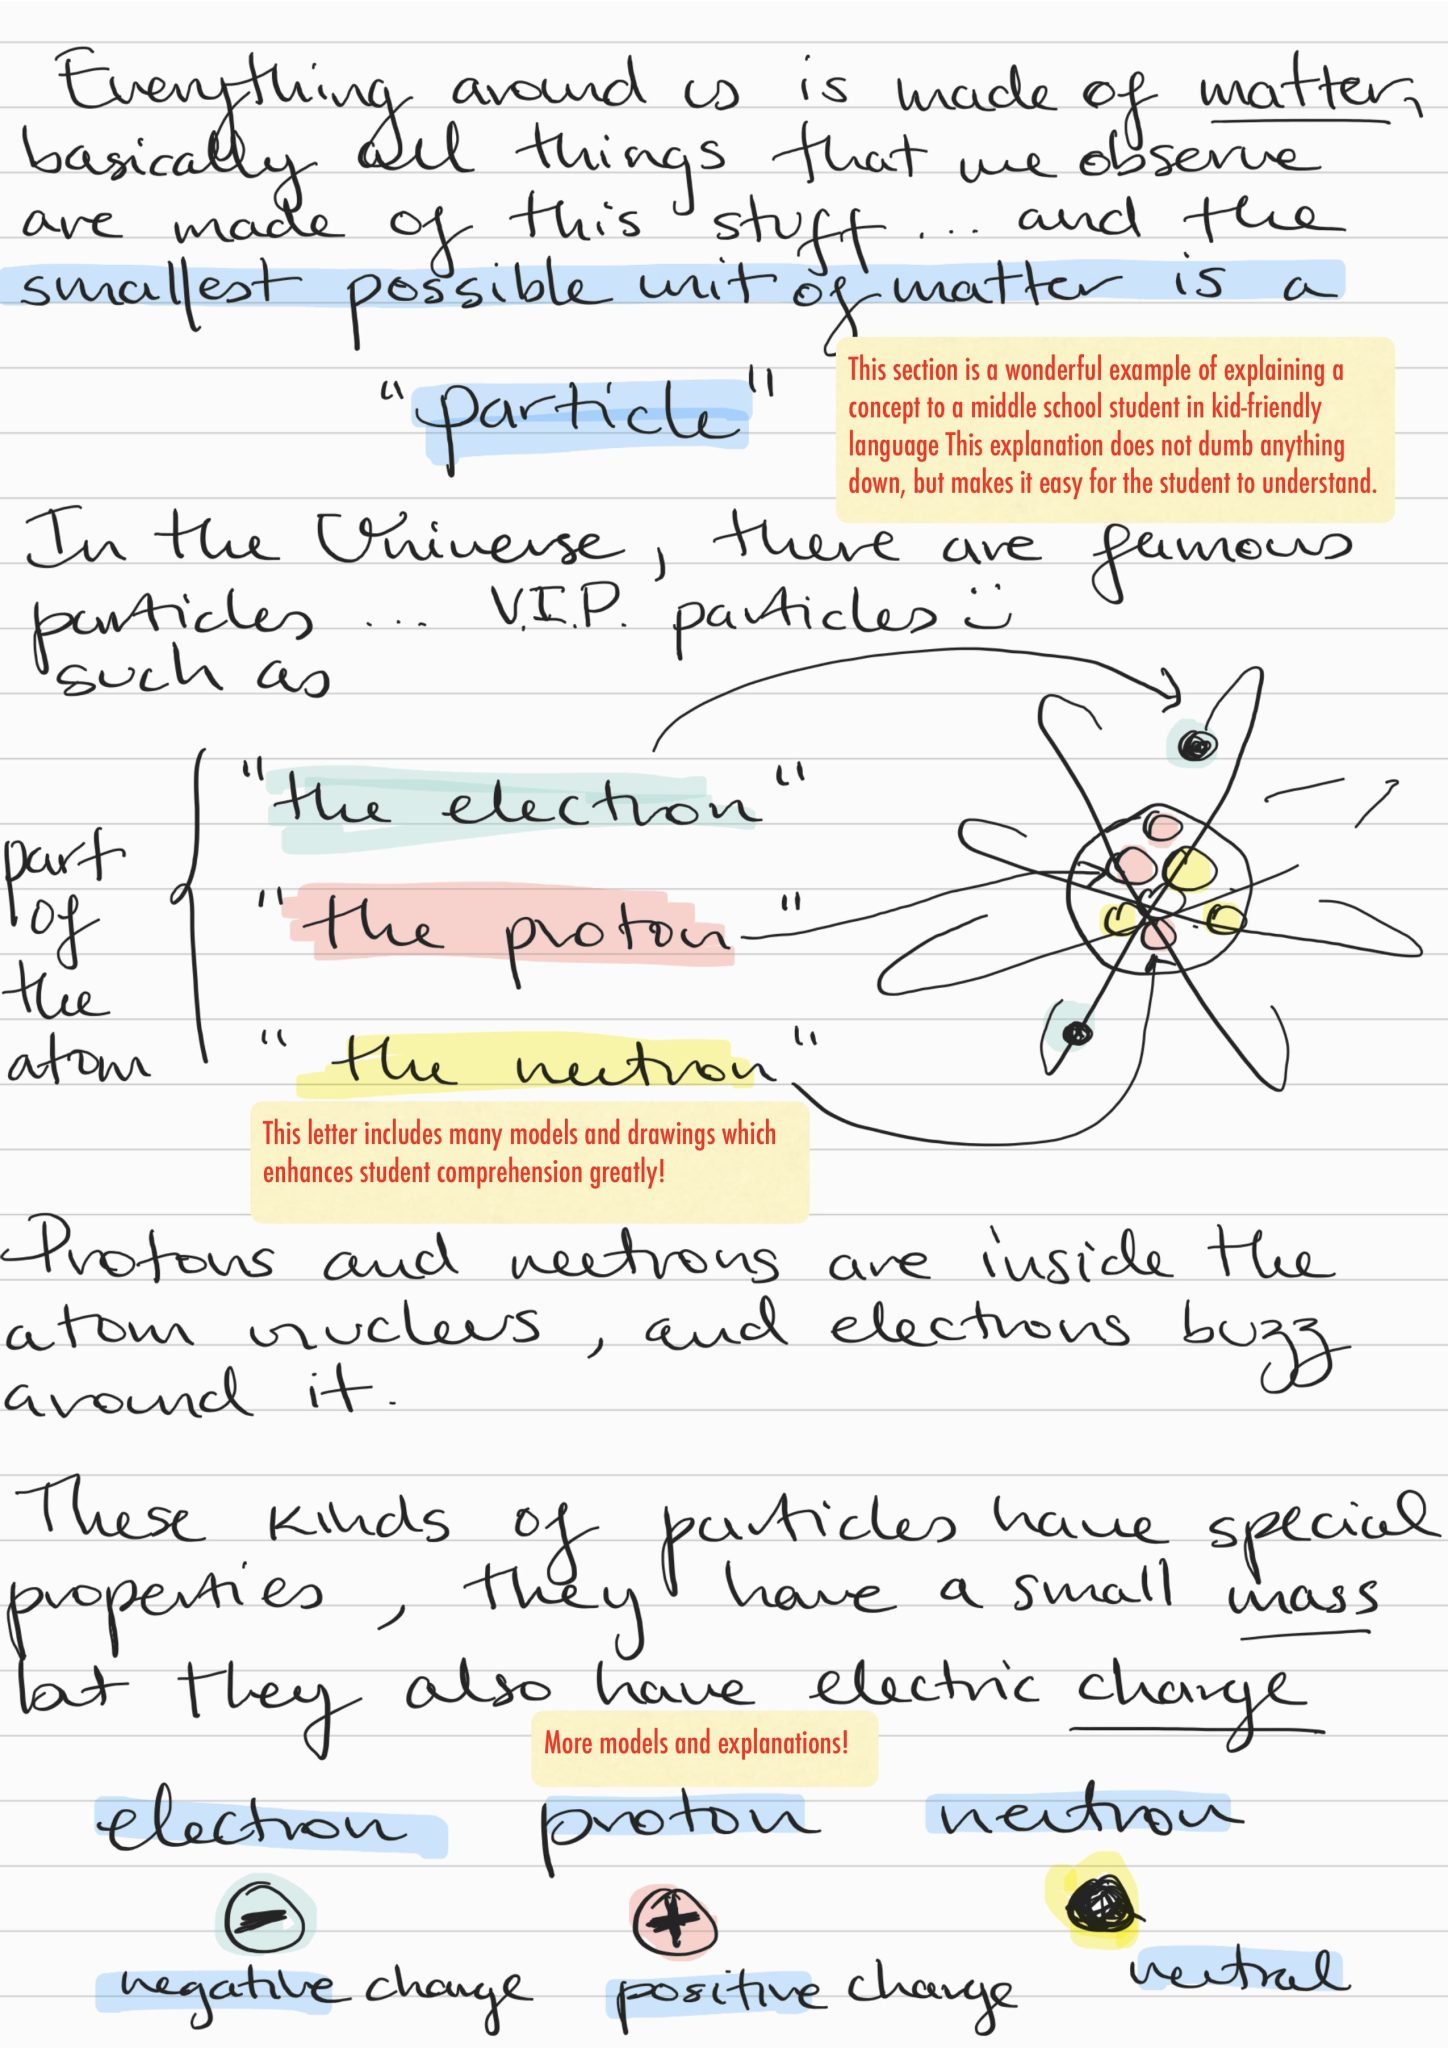 Everything around us is made of matter,
basically all things that we observe
are made of this stuff ... and the
smallest possible unit of matter is a
"particle"
This section is a wonderful example of explaining a
concept to a middle school student in kid-friendly
language This explanation does not dumb anything
down, but makes it easy for the student to understand.
In the Universe, there are famous
particles ... V.I.P. particles :)
such as
part
of
the
atom
"the electron"
"the proton"
"the neutron"
This letter includes many models and drawings which
enhances student comprehension greatly!
Protons and neutrons are inside the
atom nucleus, and electrons buzz
around it.
These kinds of particles have special
properties, they have a small mass
but they also have electric charge
More models and explanations!
electron proton neutron
− +
negative charge positive charge neutral